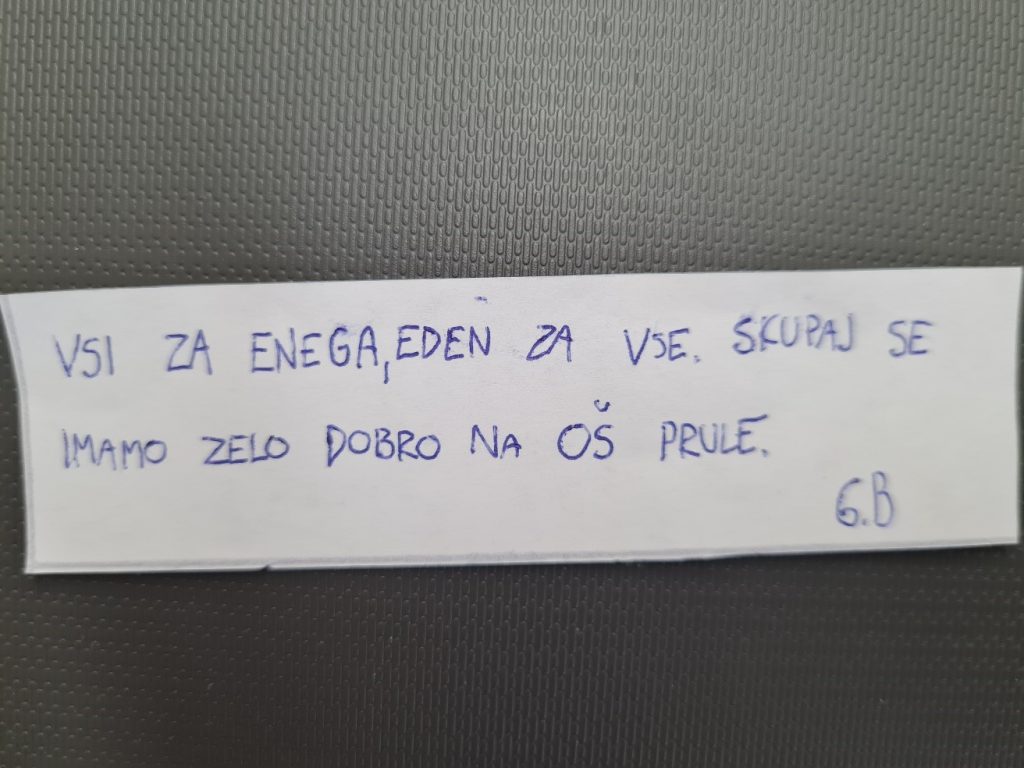 VSI ZA ENEGA, EDEN ZA VSE. SKUPAJ SE
IMAMO ZELO DOBRO NA OŠ PRULE.
6.B